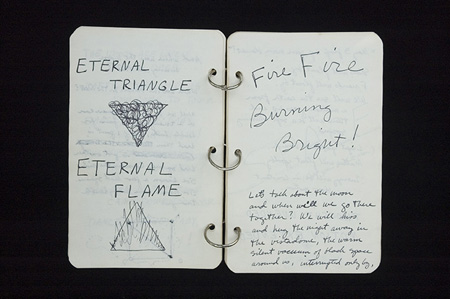 ETERNAL
TRIANGLE
ETERNAL
FLAME
Fire Fire
Burning
Bright!
Let's talk about the moon
and when will we go there
together? We will kiss
and hug the night away in
the vistadome, the warm
silent vacuum of black space
around us, interrupted only by,